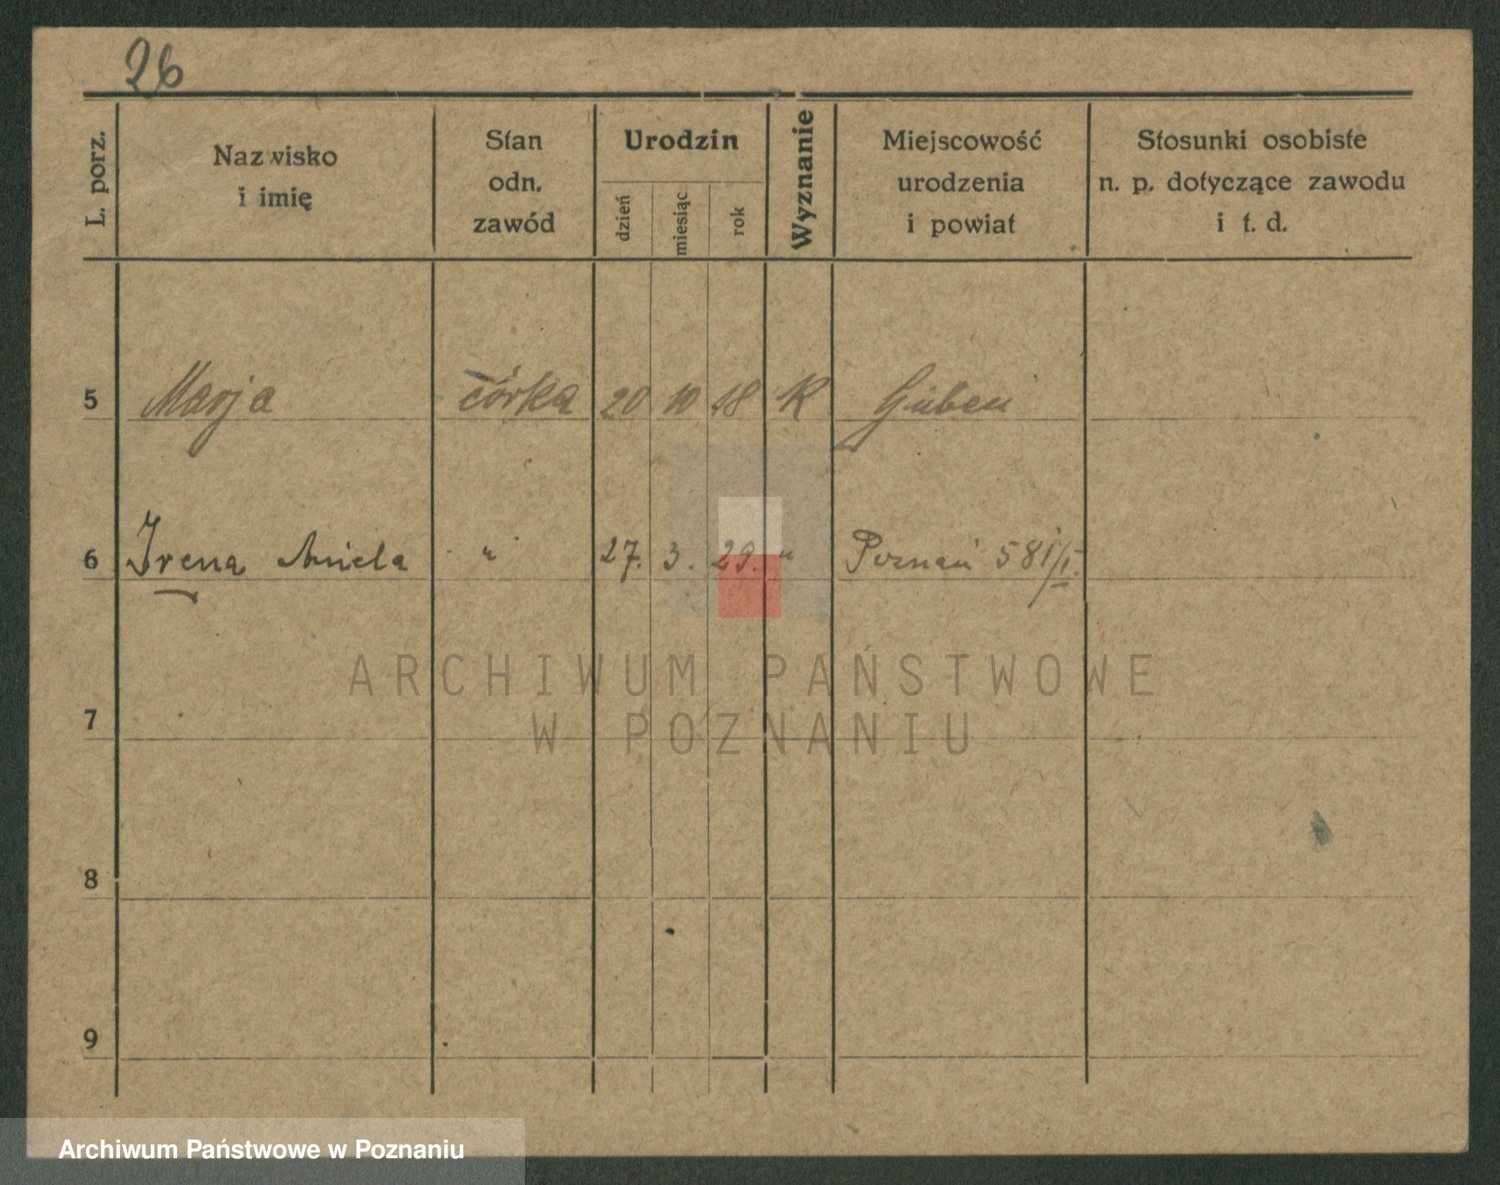 26
L. porz.
Nazwisko
i imię
Stan
odn.
zawód
Urodzin
dzień
miesiąc
rok
Wyznanie
Miejscowość
urodzenia
i powiat
Stosunki osobiste
n. p. dotyczące zawodu
i t. d.
5 Marja córka 20 10 18 K Guben
6 Irena Aniela " 27. 3. 29. " Poznań 581/I.
7
8
9
ARCHIWUM PAŃSTWOWE
W POZNANIU
Archiwum Państwowe w Poznaniu